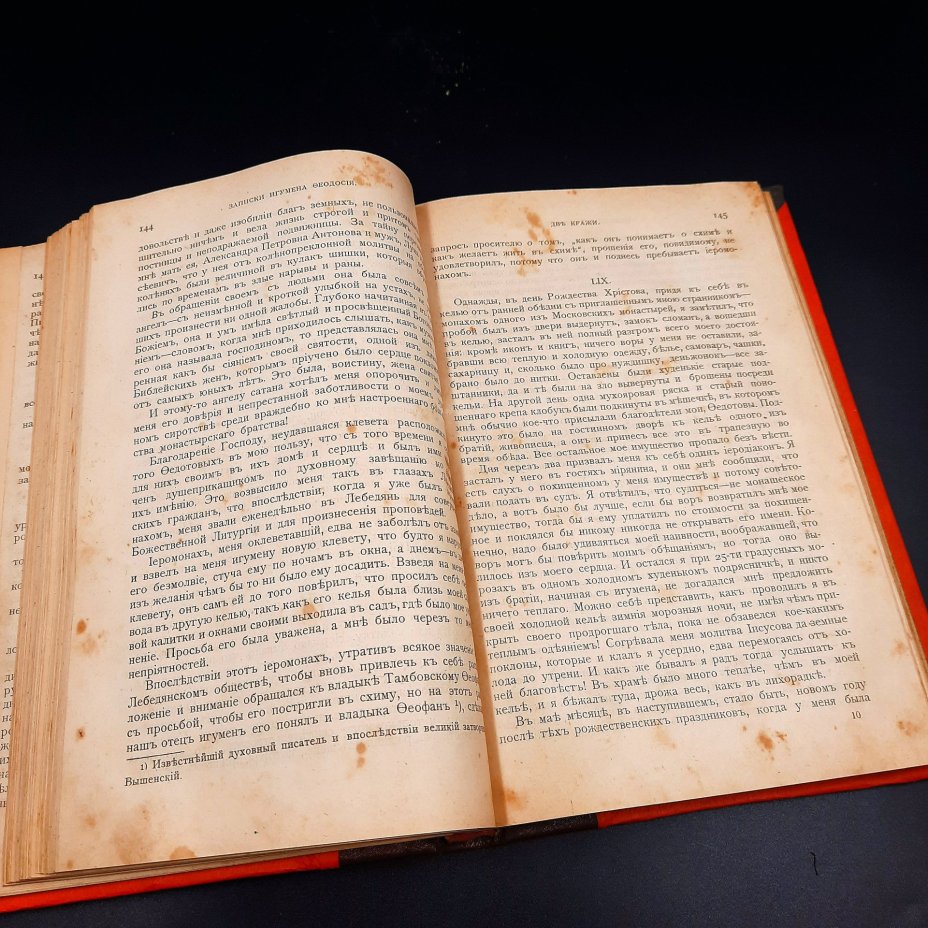 144
ЗАПИСКИ ИГУМЕНА ѲЕОДОСІЯ.
довольствѣ и даже изобиліи благъ земныхъ, не пользовал
шительно ничѣмъ и вела жизнь строгой и притомъ
постницы и неподражаемой подвижницы. За тайну
мнѣ мать ея, Александра Петровна Антонова и мужъ,
сѣевичъ, что у нея отъ колѣнопреклонной молитвы на
колѣняхъ были величиной въ кулакъ шишки, которыя
лись по временамъ въ злые нарывы и раны.
Въ обращеніи своемъ съ людьми она была совсѣмъ
ангелъ—съ неизмѣнной и кроткой улыбкой на устахъ,
шихъ произнести ни одной жалобы. Глубоко начитанная въ
Божіемъ, она и умъ имѣла свѣтлый и просвѣщенный Бо
ніемъ—словомъ, когда мнѣ приходилось слышать, какъ
его она называла господиномъ, то представлялась она мнѣ
ренная какъ бы сіяніемъ своей святости, одной изъ
Библейскихъ женъ, которымъ пріучено было сердце
отъ самыхъ юныхъ лѣтъ. Это была, воистину, жена святая.
И этому-то ангелу сатана хотѣлъ меня опорочить и
меня его довѣрія и непрестанной заботливости о моемъ
номъ сиротствѣ среди враждебно ко мнѣ настроеннаго
ства монастырскаго братства!
Благодареніе Господу, неудавшаяся клевета располож
того Ѳедотовыхъ въ мою пользу, что съ того времени я
для нихъ своимъ въ ихъ домѣ и сердцѣ и былъ ими
ченъ душеприкащикомъ по духовному завѣщанію ко
ихъ имѣнію. Это возвысило меня такъ въ глазахъ Ле
скихъ гражданъ, что впослѣдствіи, когда я уже былъ
нахомъ, меня звали еженедѣльно въ Лебедянь для сове
Божественной Литургіи и для произнесенія проповѣдей.
Іеромонахъ, меня оклеветавшій, едва не заболѣлъ отъ
и взвелъ на меня игумену новую клевету, что будто я на
его безмолвіе, стуча ему по ночамъ въ окна, а днемъ—въ
изъ желанія чѣмъ бы то ни было ему досадить. Взведя на меня
клевету, онъ самъ ей до того повѣрилъ, что просилъ себѣ
вода въ другую келью, такъ какъ его келья была близь моей
вой калитки и окнами своими выходила въ садъ, гдѣ было мое
неніе. Просьба его была уважена, а мнѣ было черезъ то
непріятностей.
Впослѣдствіи этотъ іеромонахъ, утративъ всякое значеніе
Лебедянскомъ обществѣ, чтобы вновь привлечь къ себѣ
ложеніе и вниманіе обращался къ владыкѣ Тамбовскому Ѳео
съ просьбой, чтобы его постригли въ схиму, но на этотъ
нашъ отецъ игуменъ его понялъ и владыка Ѳеофанъ ¹),
1) Извѣстнѣйшій духовный писатель и впослѣдствіи великій затвор
Вышенскій.
ДВѢ КРАЖИ.
145
запросъ просителю о томъ, „какъ онъ понимаетъ о схимѣ и
какъ желаетъ жить въ схимѣ“, прошенія его, повидимому, не
удовлетворилъ, потому что онъ и поднесь пребываетъ іеромо-
нахомъ.
LIX.
Однажды, въ день Рождества Хрістова, придя къ себѣ въ
келью отъ ранней обѣдни съ приглашеннымъ мною странникомъ—
монахомъ одного изъ Московскихъ монастырей, я замѣтилъ, что
пробой былъ изъ двери выдернутъ, замокъ сломанъ, а вошедши
въ келью, засталъ въ ней полный разгромъ всего моего достоя-
нія: кромѣ иконъ и книгъ, ничего воры у меня не оставили, за-
бравши всю теплую и холодную одежду, бѣлье, самоваръ, чашки,
сахарницу и, сколько было про нуждишку, деньжонокъ—все за-
брано было до нитки. Оставлены были худенькіе старые под-
штанники, да и тѣ были на зло вывернуты и брошены посреди
кельи. На другой день одна мухояровая ряска и старый поно-
шеннаго крепа клобукъ были подкинуты въ мѣшечкѣ, въ которомъ
мнѣ обычно кое-что присылали благодѣтели мои, Ѳедотовы. Под-
кинуто это было на гостинномъ дворѣ къ кельѣ одного изъ
братій, живописца, а онъ и принесъ все это въ трапезную во
время обѣда. Все остальное мое имущество пропало безъ вѣсти.
Дня черезъ два призвалъ меня къ себѣ одинъ іеродіаконъ. Я
засталъ у него въ гостяхъ мірянина, и они мнѣ сообщили, что
есть слухъ о похищенномъ у меня имуществѣ и потому совѣто-
вали подать въ судъ. Я отвѣтилъ, что судиться—не монашеское
дѣло, а вотъ было бы лучше, если бы воръ возвратилъ мнѣ мое
имущество, тогда бы я ему уплатилъ по стоимости за похищен-
ное и поклялся бы никому никогда не открывать его имени. Ко-
нечно, надо было удивляться моей наивности, воображавшей, что
воръ могъ бы повѣрить моимъ обѣщаніямъ, но тогда оно вы-
лилось изъ моего сердца. И остался я при 25-ти градусныхъ мо-
розахъ въ одномъ холодномъ худенькомъ подрясничкѣ, и никто
изъ братіи, начиная съ игумена, не догадался мнѣ предложить
ничего теплаго. Можно себѣ представить, какъ проводилъ я въ
своей холодной кельѣ зимнія морозныя ночи, не имѣя чѣмъ при-
крыть своего продрогшаго тѣла, пока не обзавелся кое-какимъ
теплымъ одѣяніемъ! Согрѣвала меня молитва Іисусова да земные
поклоны, которые и клалъ я усердно, едва перемогаясь отъ хо-
лода до утрени. И какъ же бывалъ я радъ тогда услышать къ
ней благовѣстъ! Въ храмѣ было много теплѣе, чѣмъ въ моей
кельѣ, и я бѣжалъ туда, дрожа весь, какъ въ лихорадкѣ.
Въ маѣ мѣсяцѣ, въ наступившемъ, стало быть, новомъ году
послѣ тѣхъ рождественскихъ праздниковъ, когда у меня была
10